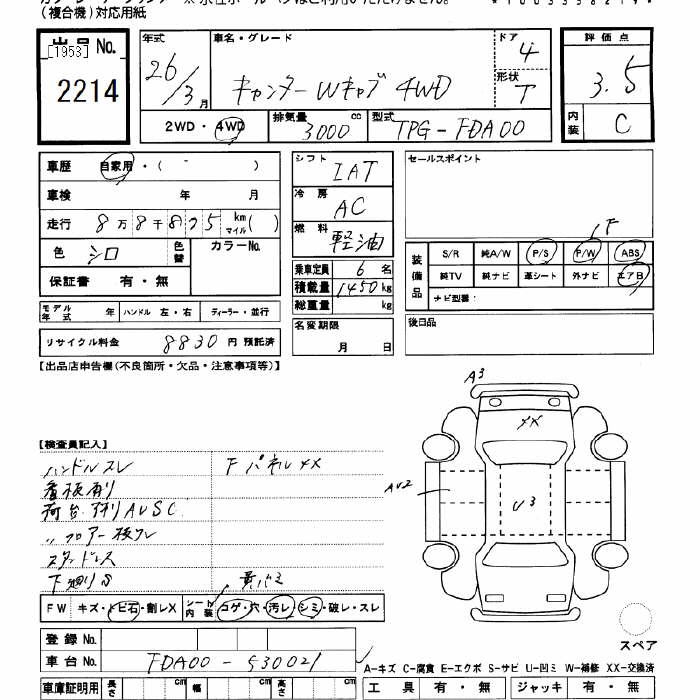 (複合機)対応用紙
出品 No.
[1953]
2214
年式
26/3月
車名・グレード
キャンター Wキャブ 4WD
ドア
4
形状
T
評価点
3.5
内装
C
2WD・4WD
排気量
3000 cc
型式
TPG-FDA00
車歴
自家用・( - )
車検 年 月
走行 8万8千875 km マイル( )
色 シロ
色替
カラーNo.
保証書 有・無
シフト
IAT
冷房
AC
燃料
軽油
乗車定員 6 名
積載量 1450 kg
総重量 kg
名変期限
月 日
セールスポイント
F
装備品
S/R 純A/W P/S P/W ABS
純TV 純ナビ 革シート 外ナビ エアB
ナビ型番:
後日品
モデル年式 年
ハンドル 左・右
ディーラー・並行
リサイクル料金 8830 円 預託済
【出品店申告欄(不良箇所・欠品・注意事項等)】
【検査員記入】
ハンドルスレ
Fパネルメメ
看板有り
スタッドレス
下廻りS
A3
メX
AU2
U3
FW キズ・トビ石・割レX
シート内装 コゲ・穴・汚レ・シミ・破レ・スレ
登録 No.
車台 No.
FDA00-530021
スペア
A-キズ C-腐食 E-エクボ S-サビ U-凹ミ W-補修 XX-交換済
車庫証明用 長さ cm 幅 cm 高さ cm
工具 有・無 ジャッキ 有・無